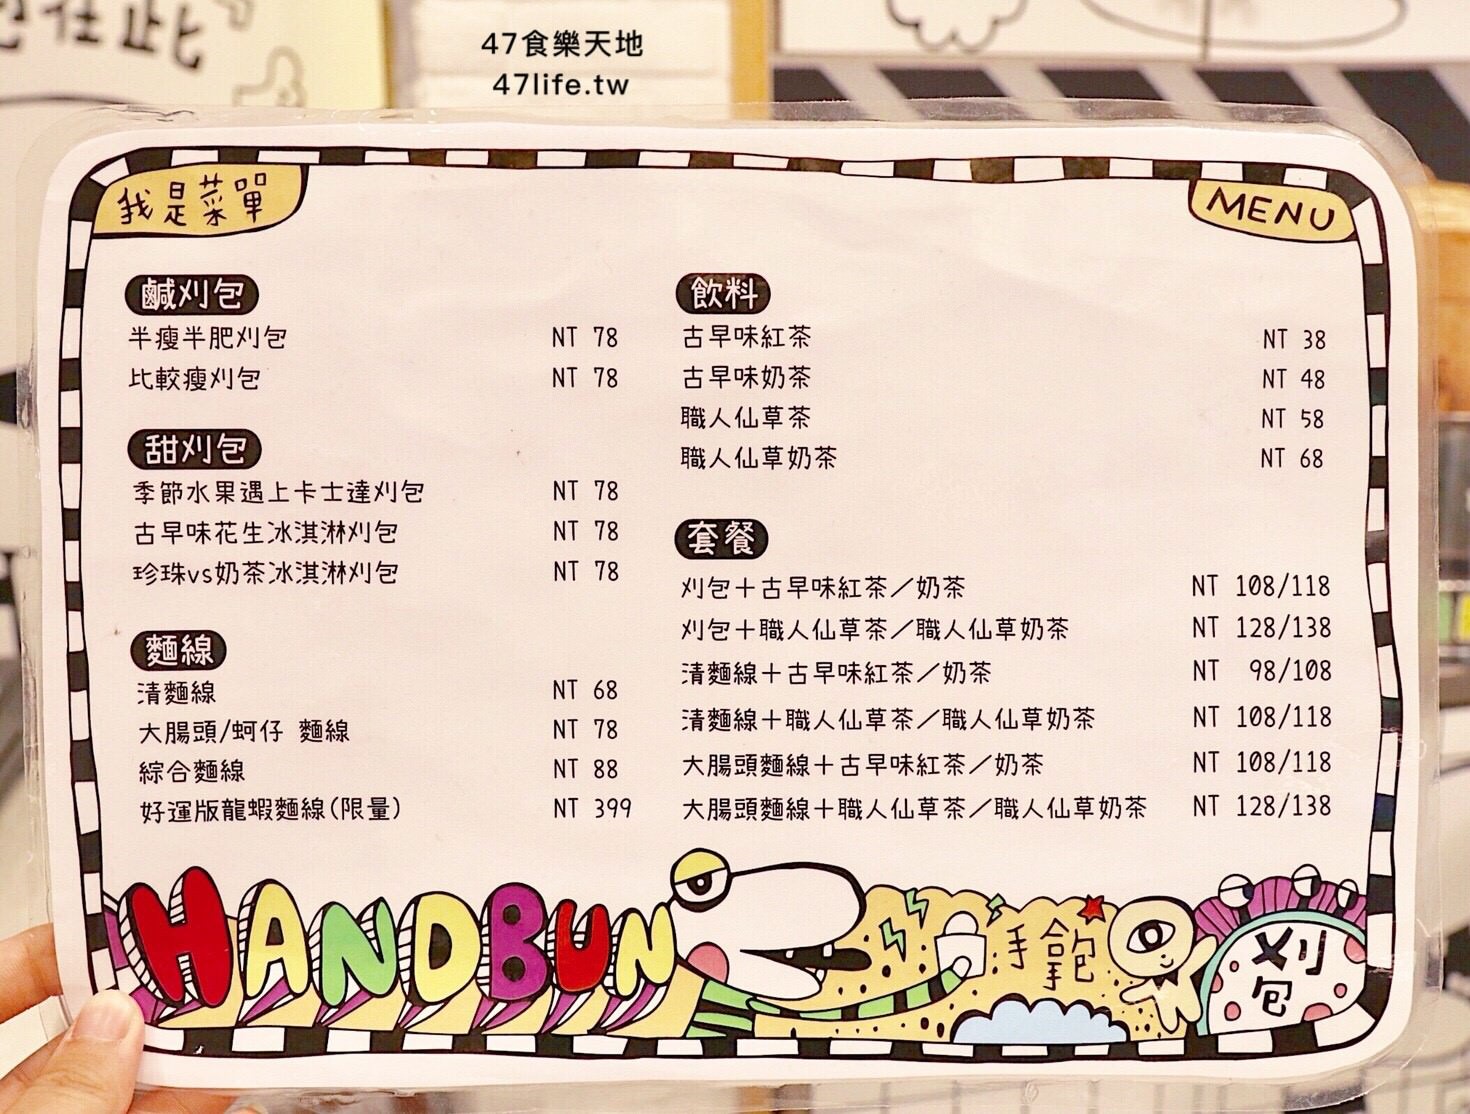 包在此
47食樂天地
47life.tw
我是菜單
MENU
鹹刈包
半瘦半肥刈包 NT 78
比較瘦刈包 NT 78
甜刈包
季節水果遇上卡士達刈包 NT 78
古早味花生冰淇淋刈包 NT 78
珍珠vs奶茶冰淇淋刈包 NT 78
麵線
清麵線 NT 68
大腸頭/蚵仔 麵線 NT 78
綜合麵線 NT 88
好運版龍蝦麵線(限量) NT 399
飲料
古早味紅茶 NT 38
古早味奶茶 NT 48
職人仙草茶 NT 58
職人仙草奶茶 NT 68
套餐
刈包＋古早味紅茶／奶茶 NT 108/118
刈包＋職人仙草茶／職人仙草奶茶 NT 128/138
清麵線＋古早味紅茶／奶茶 NT 98/108
清麵線＋職人仙草茶／職人仙草奶茶 NT 108/118
大腸頭麵線＋古早味紅茶／奶茶 NT 108/118
大腸頭麵線＋職人仙草茶／職人仙草奶茶 NT 128/138
HANDBUN
手拿包
刈包